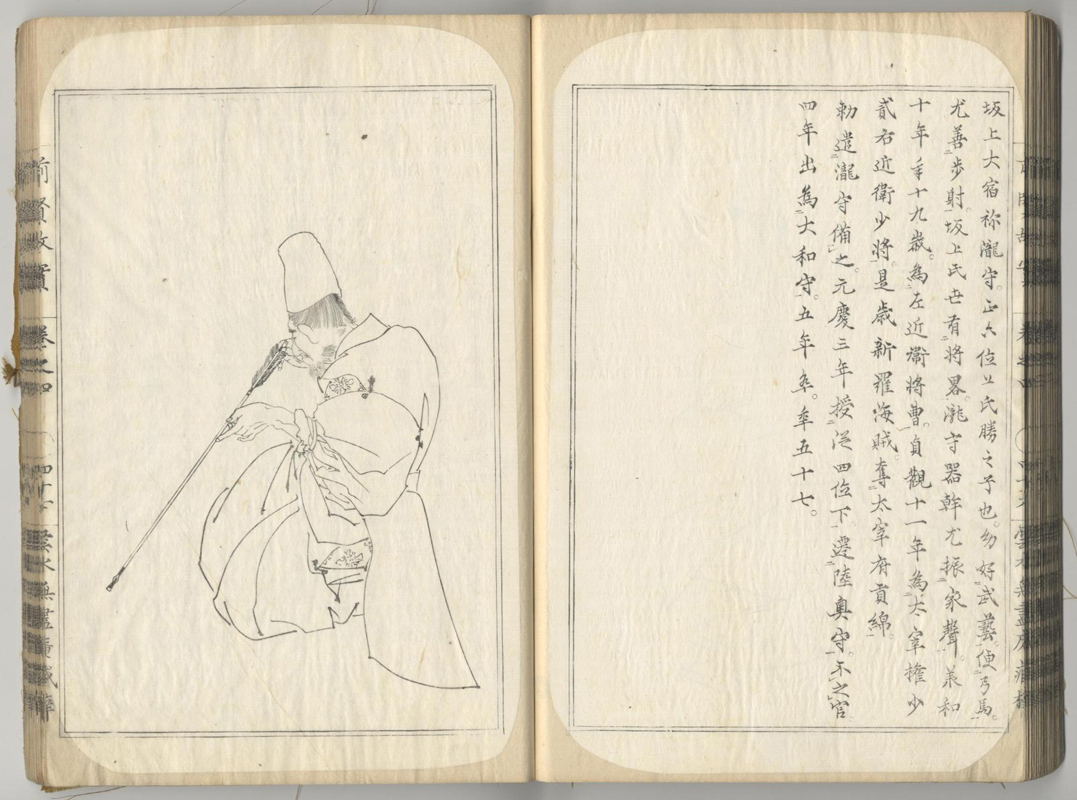 坂上大宿祢瀧守。正六位上氏勝之子也。幼好武藝。便弓馬。
尤善歩射。坂上氏世有將畧。瀧守器幹尤振家聲。承和
十年年十九歳。為左近衛將曹。貞觀十一年為太宰權少
貳右近衛少將。是歳新羅海賊奪太宰府貢綿。
勅遣瀧守備之。元慶三年授從四位下。遷陸奥守。不之官
四年出為大和守。五年卒。年五十七。
前賢故實 卷之四 雲水無盡